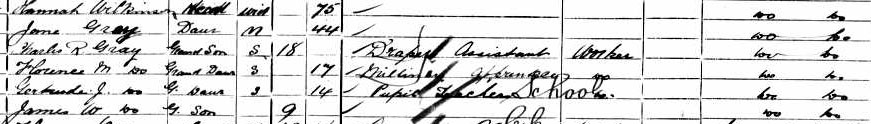 Hannah Wilkinson Head Wid 75 do do
Jane Gray Daur M 44 do do
Charles R Gray Grand Son S 18 Drapers Assistant Worker do do
Florence M do Grand Daur S 17 Millinery do do do
Gertrude J. do G. Daur S 14 Pupil Teacher School do. do do
James W do G. Son 9 do do